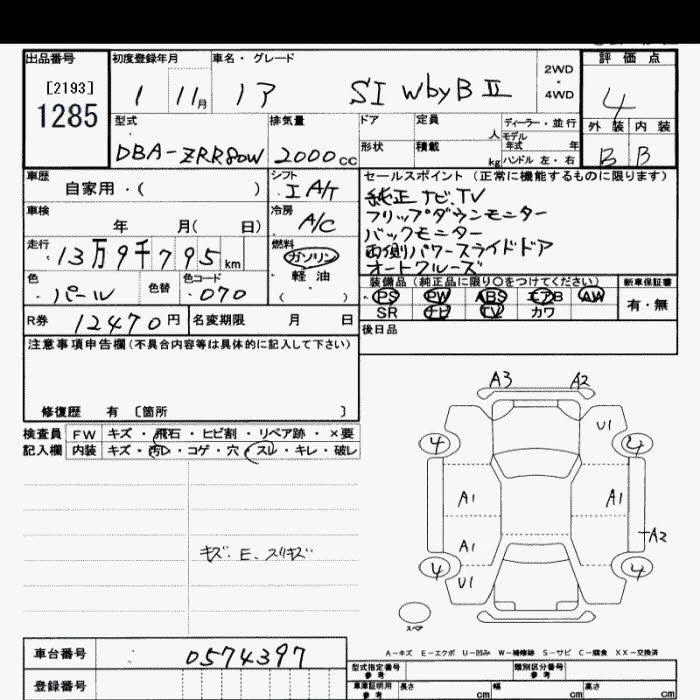 出品番号 初度登録年月 車名・グレード 2WD・4WD 評価点
[2193]
1285
1 11月 17 SI WbyB Ⅱ 4
型式 排気量 ドア 定員 人 ディーラー・並行 外装 内装
モデル年式 年
DBA-ZRR80W 2000cc 形状 積載 kg ハンドル 左・右 B B
車歴 シフト セールスポイント (正常に機能するものに限ります)
自家用・( ) I A/T 純正 ナビ.TV
フリップダウンモニター
車検 冷房 バックモニター
年 月( 日) A/C 両側パワースライドドア
オートクルーズ
走行 燃料
13万9千795km ガソリン
軽油
( )
色 色替 色コード 装備品 (純正品に限り○をつけてください) 新車保証書
パール 070 PS PW ABS エアB AW 有・無
SR ナビ TV カワ
R券 12470円 名変期限 月 日 後日品
注意事項申告欄 (不具合内容等は具体的に記入して下さい)
修復歴 有 [箇所 ]
検査員 FW キズ・飛石・ヒビ割・リペア跡・×要
記入欄 内装 キズ・汚レ・コゲ・穴・スレ・キレ・破レ
キズ E、スリキズ
A3 A2
U1
4 4
A1 A1
A2
A1
4 4
U1
スペア
A-キズ E-エクボ U-凹み W-補修跡 S-サビ C-腐食 XX-交換済
車台番号 0574397
型式指定番号 参考 類別区分番号 参考
登録番号 車庫証明用 参考 長さ cm 幅 cm 高さ cm